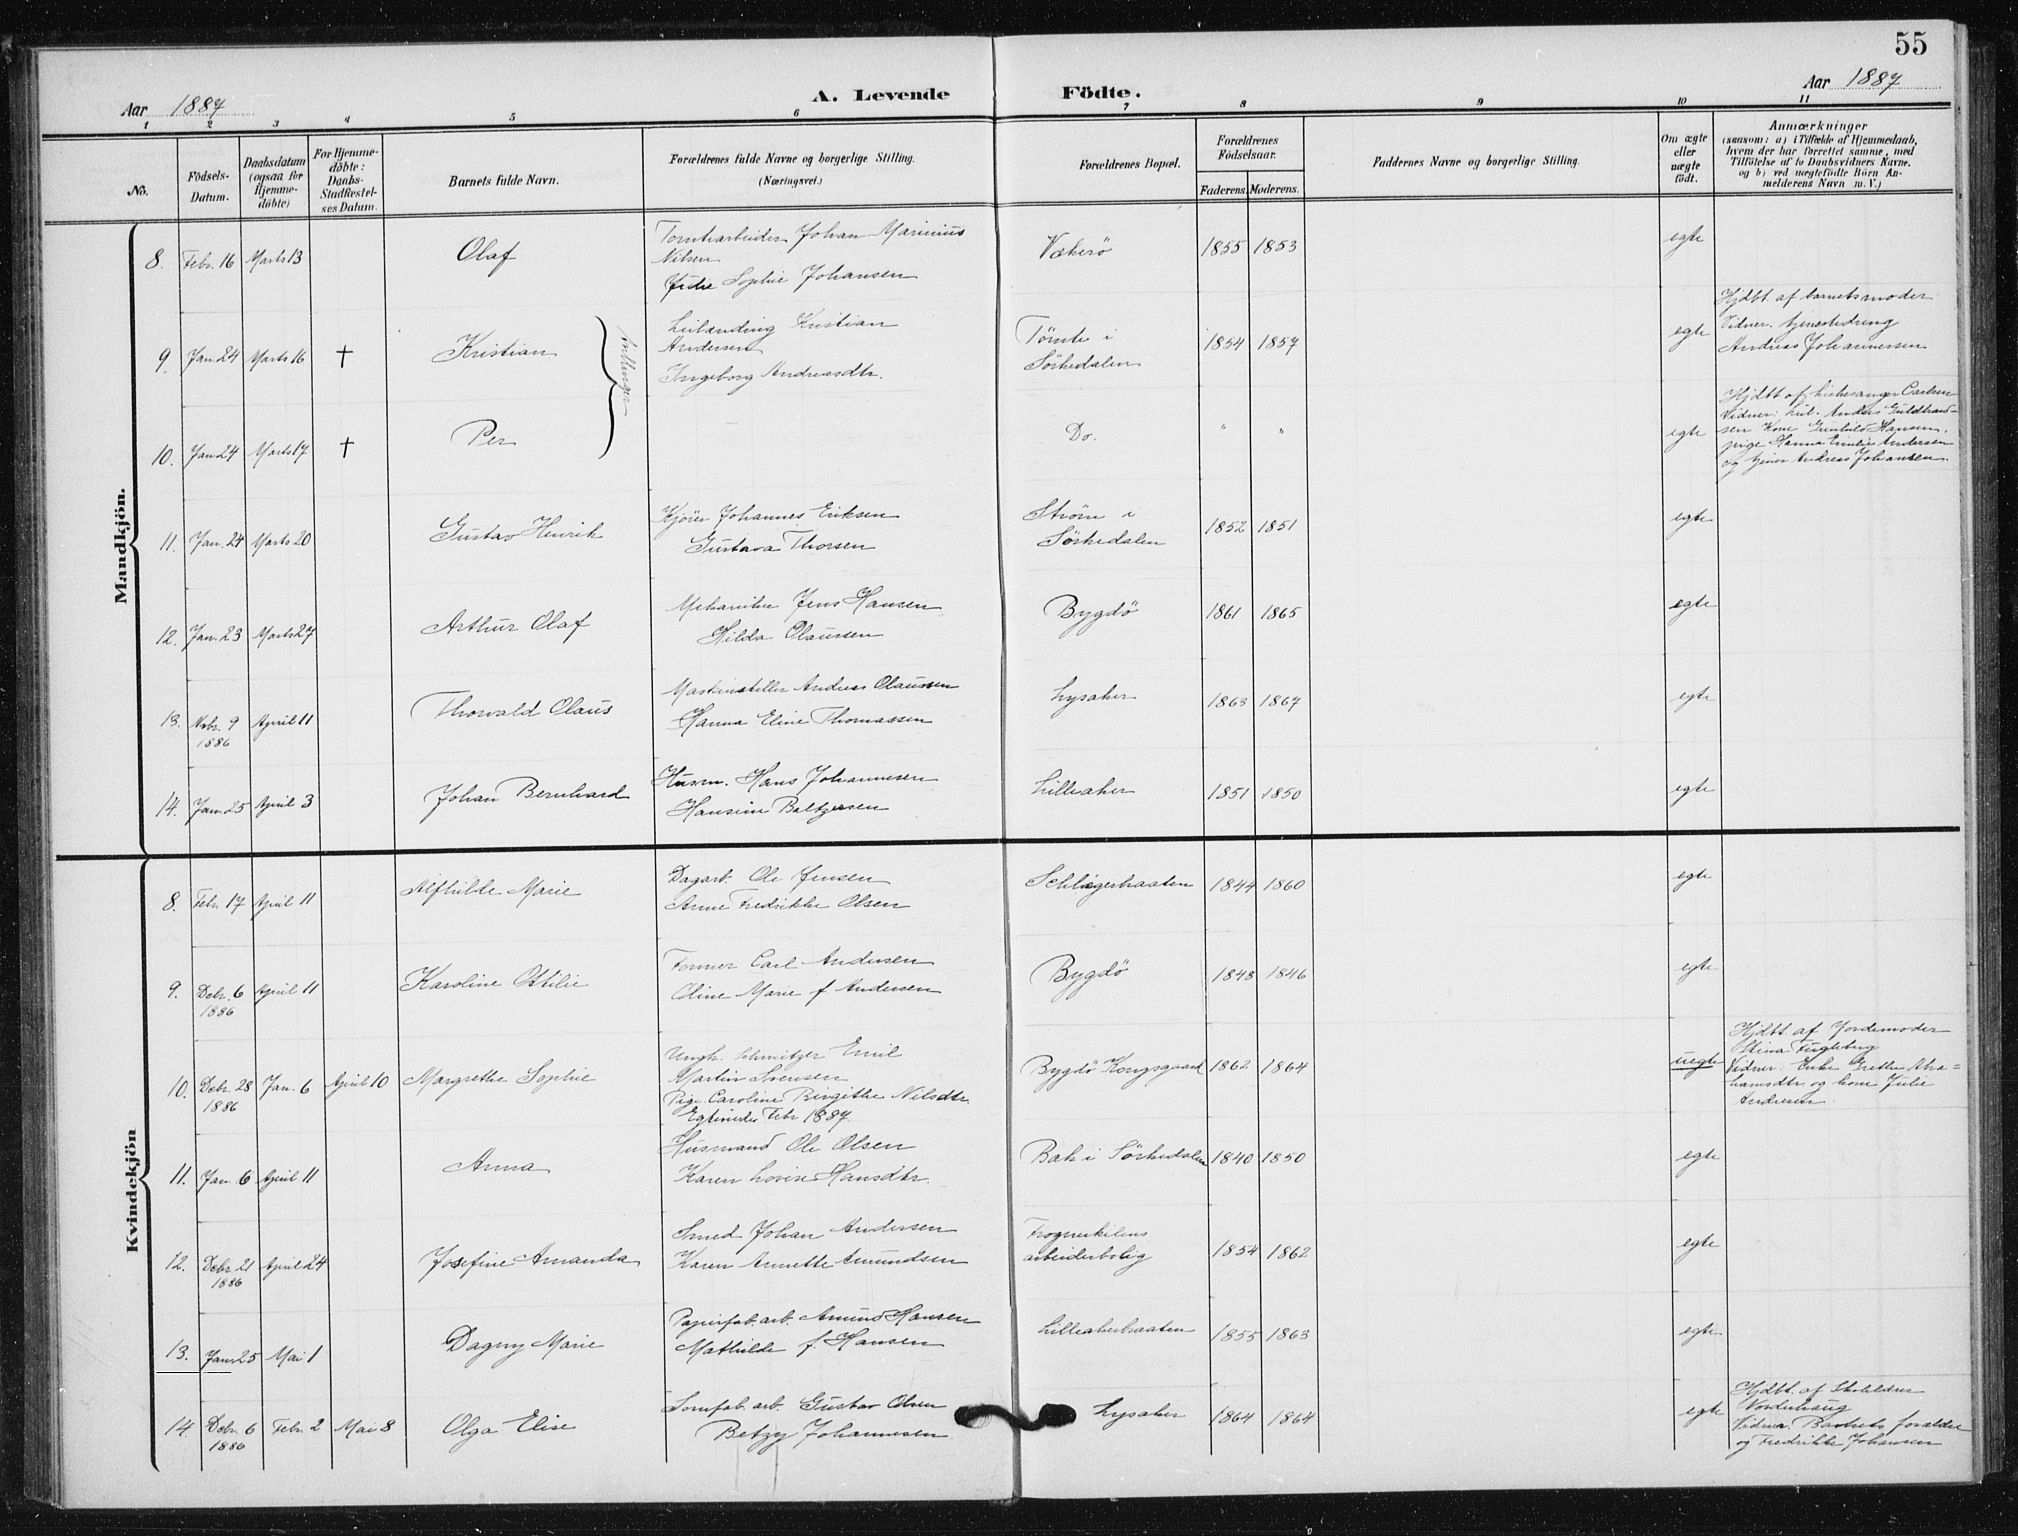 55
Aar 1887
A. Levende Födte.
Aar 1887
1 2 3 4 5 6 7 8 9 10 11
No.
Födsels-
Datum.
Daabsdatum
(ogsaa for
Hjemme-
döbte)
For Hjemme-
döbte:
Daabs-
Stadfæstel-
ses Datum.
Barnets fulde Navn.
Forældrenes fulde Navne og borgerlige Stilling.
(Næringsvei.)
Forældrenes Bopæl.
Forældrenes
Födselsaar.
Faderens. Moderens.
Faddernes Navne og borgerlige Stilling.
Om ægte
eller
uægte
födt.
Anmærkninger
(saasom: a) i Tilfælde af Hjemmedaab,
hvem der har forrettet samme, med
Tilföielse af to Daabsvidners Navne.
og b) ved uægtefödte Börn An-
melderens Navn m. V.)
Mandkjön.
8. Febr. 16 Marts 13 Olaf
Tomtearbeider Johan Marinius
Nilsen
Sophie Johansen
Vækerö 1855 1853 egte
9. Jan. 24 Marts 16 † Kristian
Leilænding Kristian
Andersen
Ingeborg Andreasdtr.
Tvillinger
Tömte i
Sörkedalen
1854 1857 egte
Hjdbt. af barnets moder
Vidner. tjenestedreng
Andreas Johannessen
10. Jan 24 Marts 17 † Per
Do. " " egte
Hjdbt af kirkesanger Carlsen
Vidner: Leil. Anders Guldbrand-
sen Kone Gunhild Hansen,
pige Hanna Emilie Andersen
og tjener Andreas Johansen.
11. Jan. 24 Marts 20 Gustav Henrik
Kjörer Johannes Eriksen
Gustava Thorsen
Ström i
Sörkedalen
1852 1851 egte
12. Jan. 23 Marts 27 Arthur Olaf
Mekaniker Jens Hansen
Hilda Olaussen
Bygdö 1861 1865 egte
13. Novbr. 9 April 11 Thorvald Olaus
1886
Maskinstiller Andreas Olaussen
Hanna Eline Thomassen
Lysaker 1863 1867 egte
14. Jan. 25 April 3 Johan Bernhard
Husm. Hans Johannesen
Hansine Baltzersen
Lilleaker 1851 1850 egte
Kvindekjön
8. Febr. 17 April 11 Alfhilde Marie
Dagarb. Ole Jensen
Anne Fredrikke Olsen
Schlägerbraaten 1844 1860 egte
9. Debr. 6 April 11 Karoline Ottilie
1886
Former Carl Andersen
Oline Marie f. Andersen
Bygdö 1848 1846 egte
10. Debr. 28 Jan. 6 April 10 Margrethe Sophie
1886
Ungk. Schweitzer Emil
Martin Svensen
Pige Caroline Birgithe Nilsdtr.
Egteviedes Febr 1887.
Bygdö Kongsgaard 1862 1864 uegte
Hjdbt. af Jordemoder
Stina Fugleberg
Vidner. Enke Grethe Abra-
hamsdtr. og kone Julie
Andresen.
11. Jan 6 April 11 Anna
Husmand Ole Olsen
Karen Lovise Hansdtr.
Bak i Sörkedalen 1840 1850 egte
12. Debr. 21 April 24 Josefine Amanda
1886
Smed Johan Andersen
Karen Annette Amundsen
Frognerkilens
arbeiderbolig
1854 1862 egte
13. Jan 25 Mai 1 Dagny Marie
Papirfab. arb. Amund Hansen
Mathilde f. Hansen
Lilleakerbraaten 1855 1863 egte
14. Debr. 6 Febr. 2 Mai 8 Olga Elise
1886
Sömfab. arb. Gustav Olsen
Betzy Johannesen
Lysaker 1864 1864 egte
Hjdbt. af Skoleholder
Norderhaug
Vidner. Barnets forældre
og Fredrikke Johansen